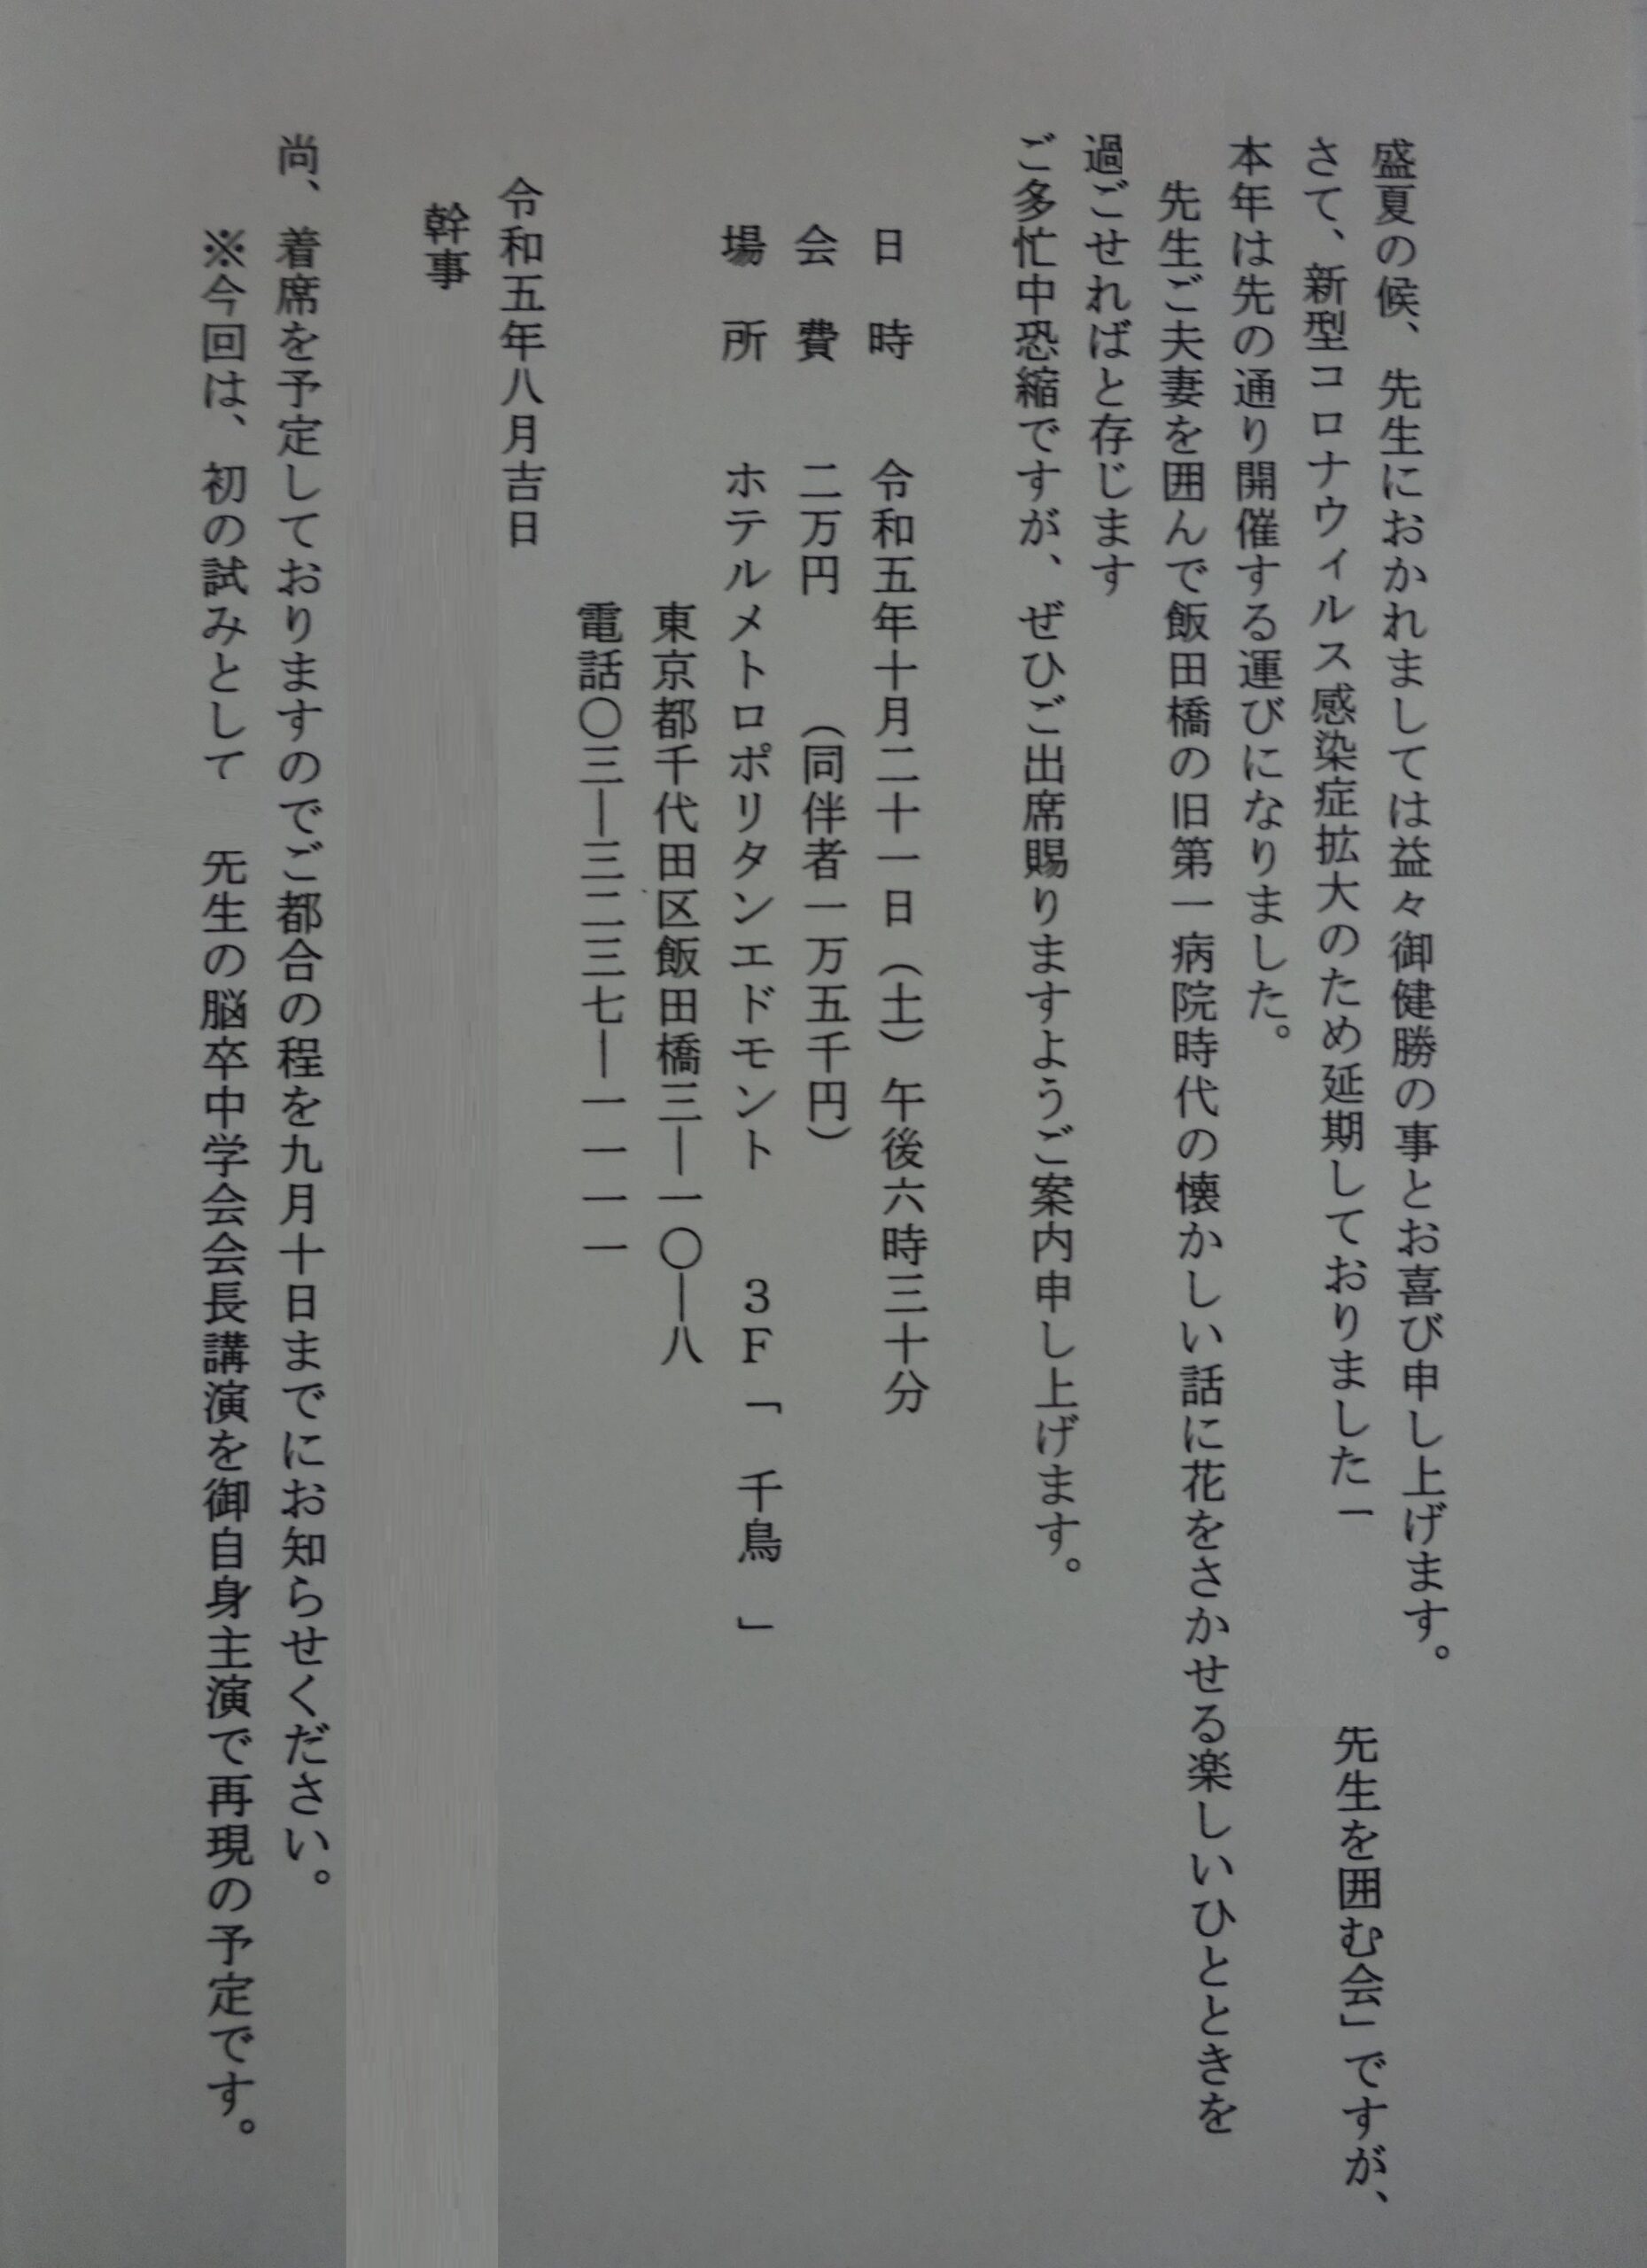 盛夏の候、先生におかれましては益々御健勝の事とお喜び申し上げます。
さて、新型コロナウィルス感染症拡大のため延期しておりました「 先生を囲む会」ですが、
本年は先の通り開催する運びになりました。
先生ご夫妻を囲んで飯田橋の旧第一病院時代の懐かしい話に花をさかせる楽しいひとときを
過ごせればと存じます
ご多忙中恐縮ですが、ぜひご出席賜りますようご案内申し上げます。
日 時 令和五年十月二十一日（土）午後六時三十分
会 費 二万円 （同伴者一万五千円）
場 所 ホテルメトロポリタンエドモント 3F「 千鳥 」
東京都千代田区飯田橋三―一〇―八
電話〇三―三二三七―一一一一
令和五年八月吉日
幹事
尚、着席を予定しておりますのでご都合の程を九月十日までにお知らせください。
※今回は、初の試みとして 先生の脳卒中学会会長講演を御自身主演で再現の予定です。